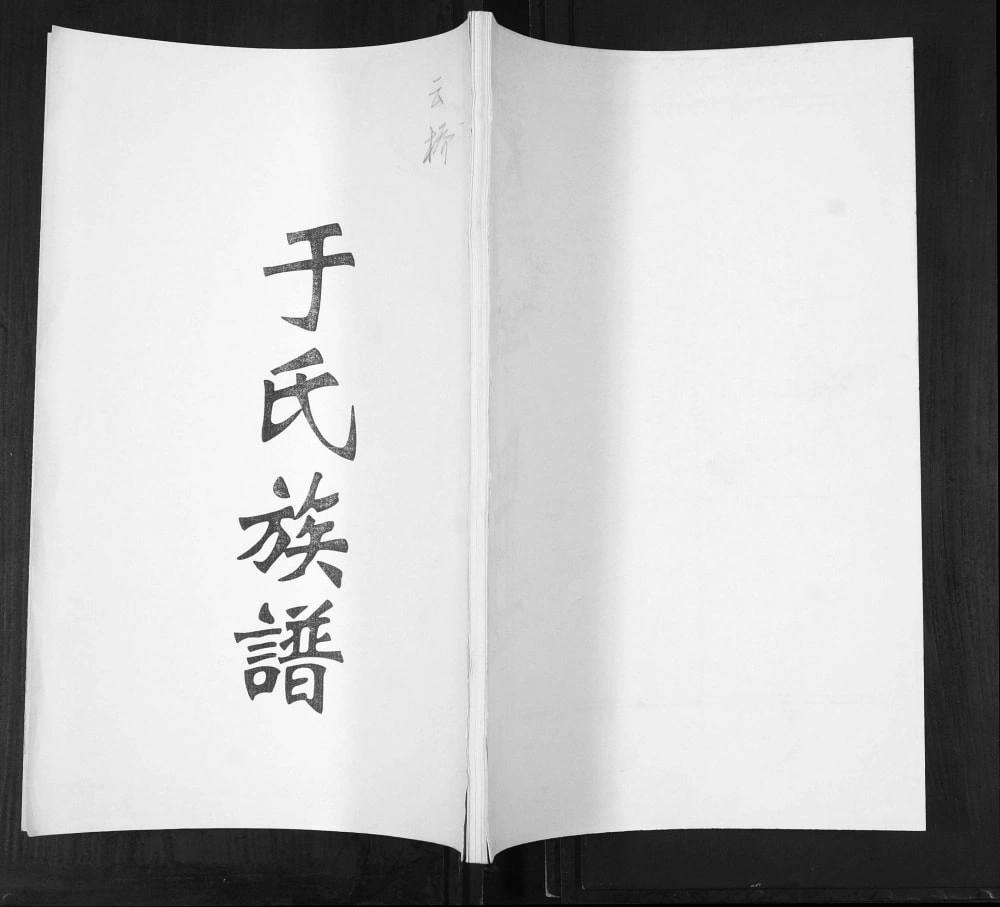 云桥
于氏族譜